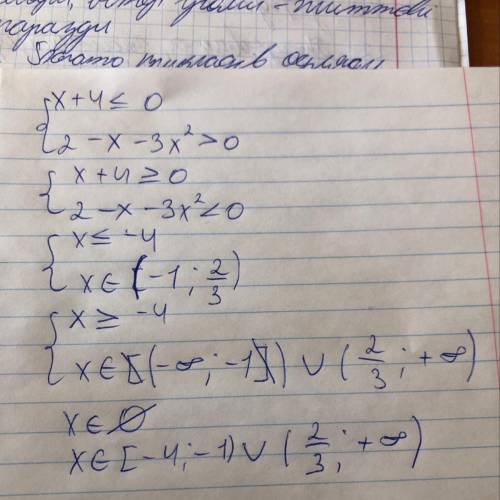 x + 4 ≤ 0
2 - x - 3x² > 0
x + 4 ≥ 0
2 - x - 3x² < 0
x ≤ -4
x ∈ (-1; 2/3)
x ≥ -4
x ∈ (-∞; -1) ∪ (2/3; +∞)
x ∈ ∅
x ∈ [-4; -1) ∪ (2/3; +∞)